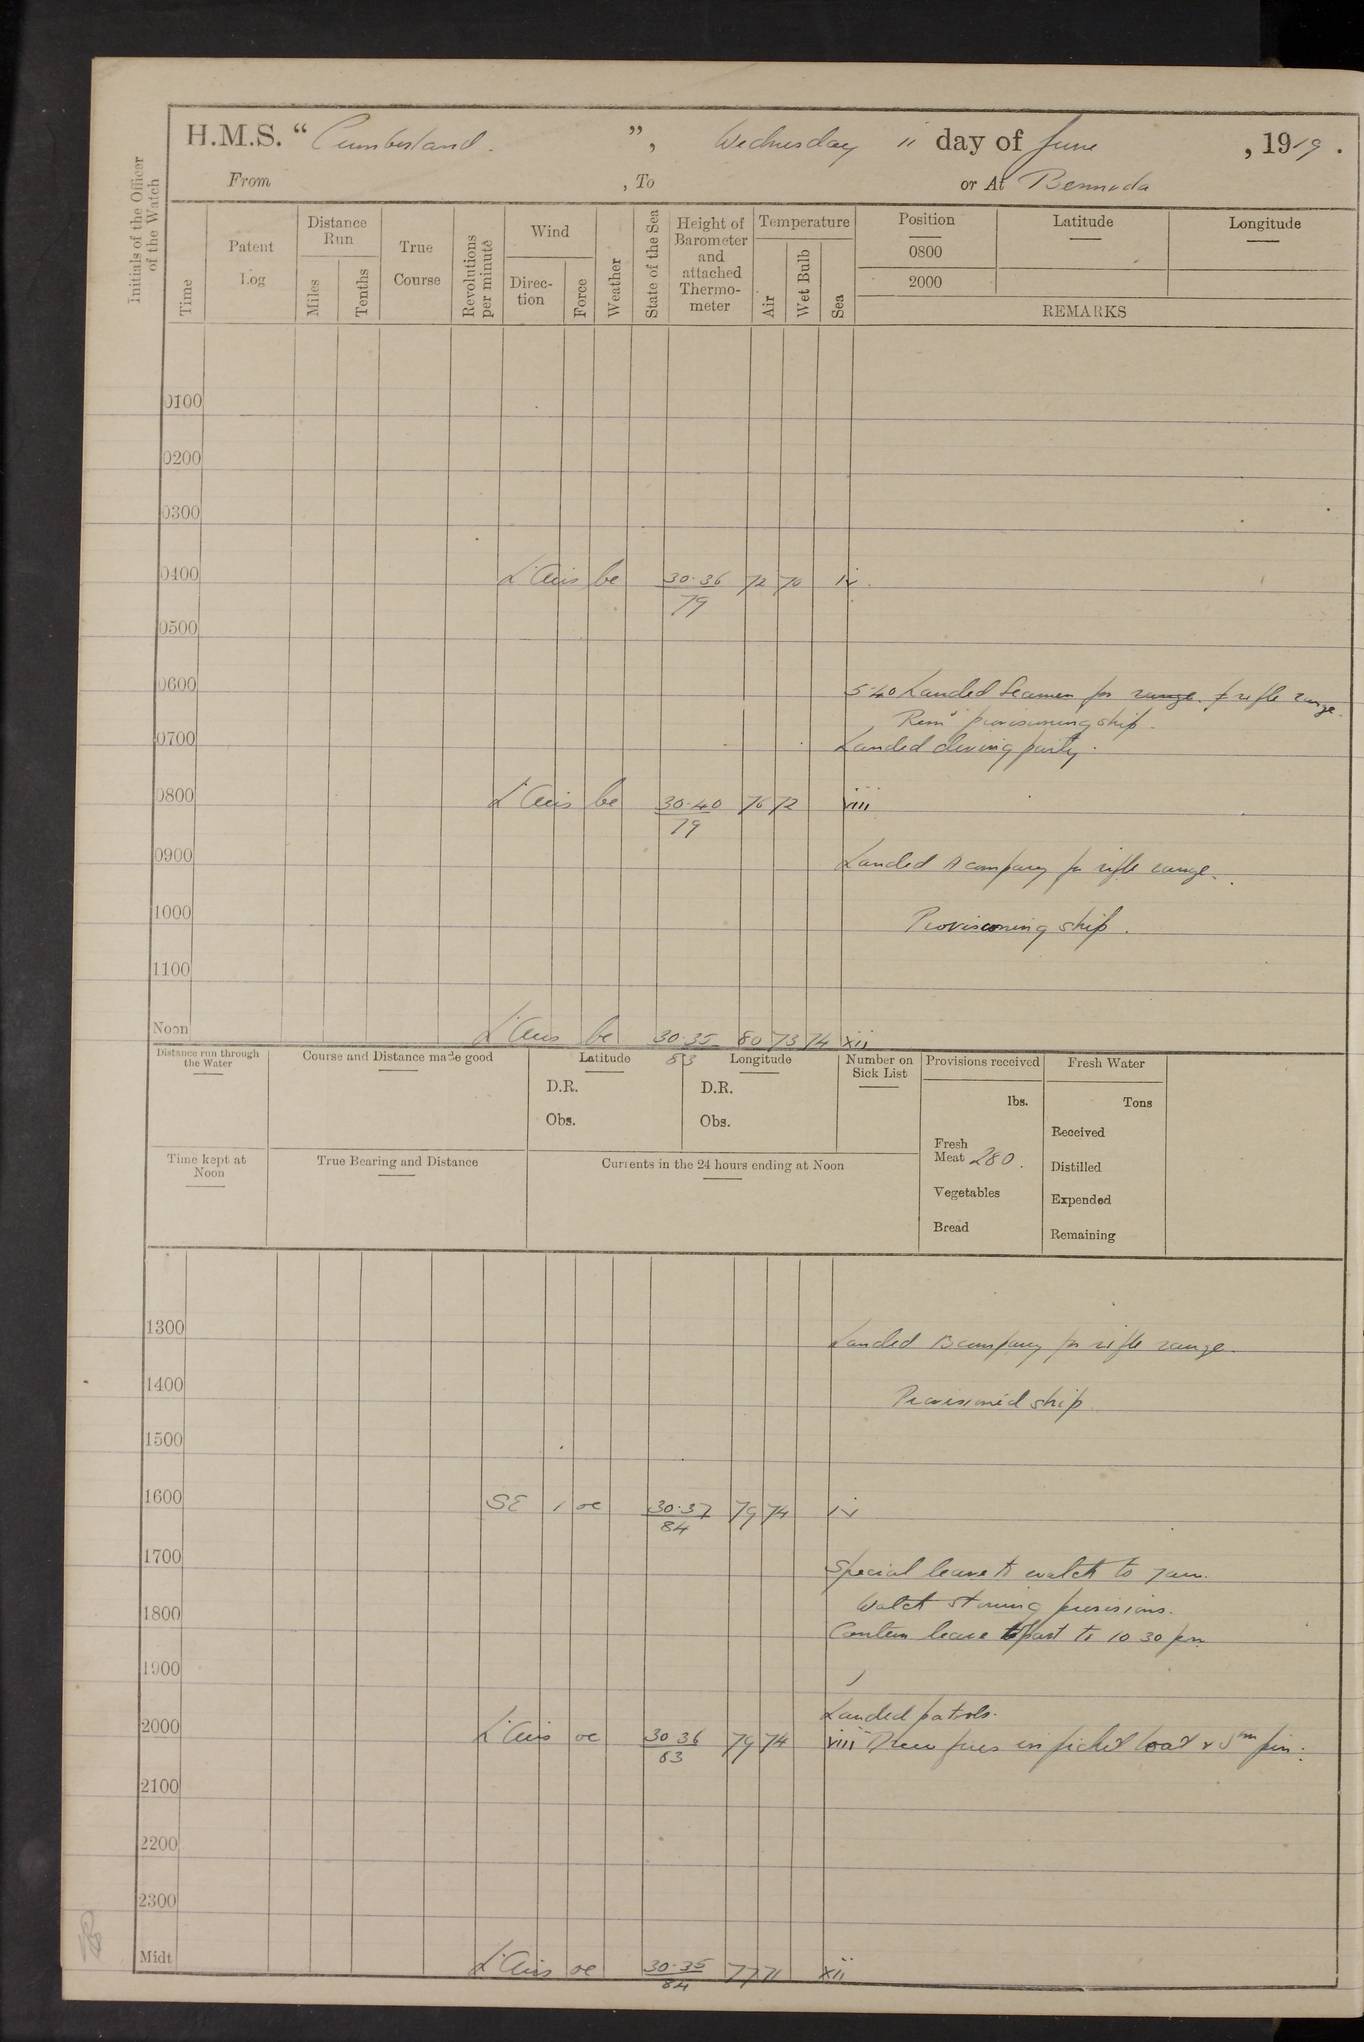 H.M.S. “ Cumberland. ”, Wednesday 11 day of June, 1919.
From , To or At Bermuda
Initials of the Officer of the Watch
Time
Patent Log
Distance Run
Miles
Tenths
True Course
Revolutions per minute
Wind
Direction
Force
Weather
State of the Sea
Height of Barometer and attached Thermometer
Temperature
Air
Wet Bulb
Sea
Position
0800
2000
Latitude
Longitude
REMARKS
0100
0200
0300
0400 L' Airs bc 30.36 72 70 iv
79
0500
0600 5.40 Landed Seamen for range. f rifle range.
Remd provisioning ship.
0700 Landed diving party.
0800 L' Airs bc 30.40 76 72 viii
79
0900 Landed A company for rifle range.
1000 Provisioning ship.
1100
Noon L' Airs bc 30.35 80 73 74 xii
83
Distance run through the Water
Course and Distance made good
Latitude
D.R.
Obs.
Longitude
D.R.
Obs.
Number on Sick List
Provisions received
lbs.
Fresh Meat 280.
Vegetables
Bread
Fresh Water
Tons
Received
Distilled
Expended
Remaining
Time kept at Noon
True Bearing and Distance
Currents in the 24 hours ending at Noon
1300 Landed B company for rifle range.
1400 Provisioned ship
1500
1600 SE 1 oc 30.37 79 74 iv
84
1700 Special leave to watch to 7 am.
Watch stowing provisions.
1800 Canteen leave to part to 10 30 pm
1900
Landed patrols.
2000 L' Airs oc 30 36 79 74 viii Drew fires in picket boat & Sm pin:
83
2100
2200
2300
Midt L' Airs oc 30.35 77 71 xii
84